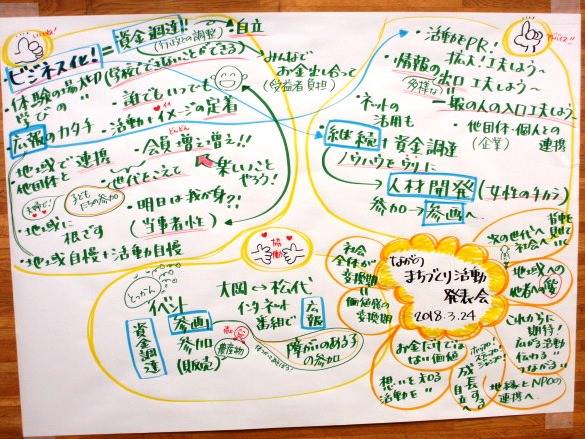 いいね!!
ビジネス化! = 資金調達!!
(行政との調整)
・自立
・体験の場
学びの
(学校でできないことができる)
・誰でもいつでも
・みんなで
お金出し合って
(受益者負担)
・広報のカタチ
・活動+イメージの定着
・地域で連携
他団体と
どんどん
・会員増え増え!!
・世代をこえて
楽しいこと
やろう!
子ども
たちの参加
・地域に
根ざす
・明日は我が身?!
(当事者性)
・地域自慢+活動自慢
・活動をPR!
拡大!工夫しよう〜
・情報の出口工夫しよう〜
(多様な)
一般の人の入口工夫しよう〜
・ネットの
活用も
・他団体・個人との
(企業)
連携
・継続+資金調達
ノウハウをウリに
人材開発(女性のチカラ)
参加→参画へ
協働
とっかん
イベント
大岡↔松代
インタネット
番組で
広報
資金調達
参画
参加
(販売)
農産物
障がいのある子
の参加
ながの
まちづくり活動
発表会
2018.3.24
社会
全体が
変換期
価値観の
変換期
お金だけでは
ない価値
想いを知る
活動を
ホップ!
ステップ!
ジャンプ!
成長する
地縁とNPOの
連携へ
これからに
期待!
広がる活動
伝わる
つながる
地域への
他者への愛
次の世代へ
社会へ
背中を
見せて